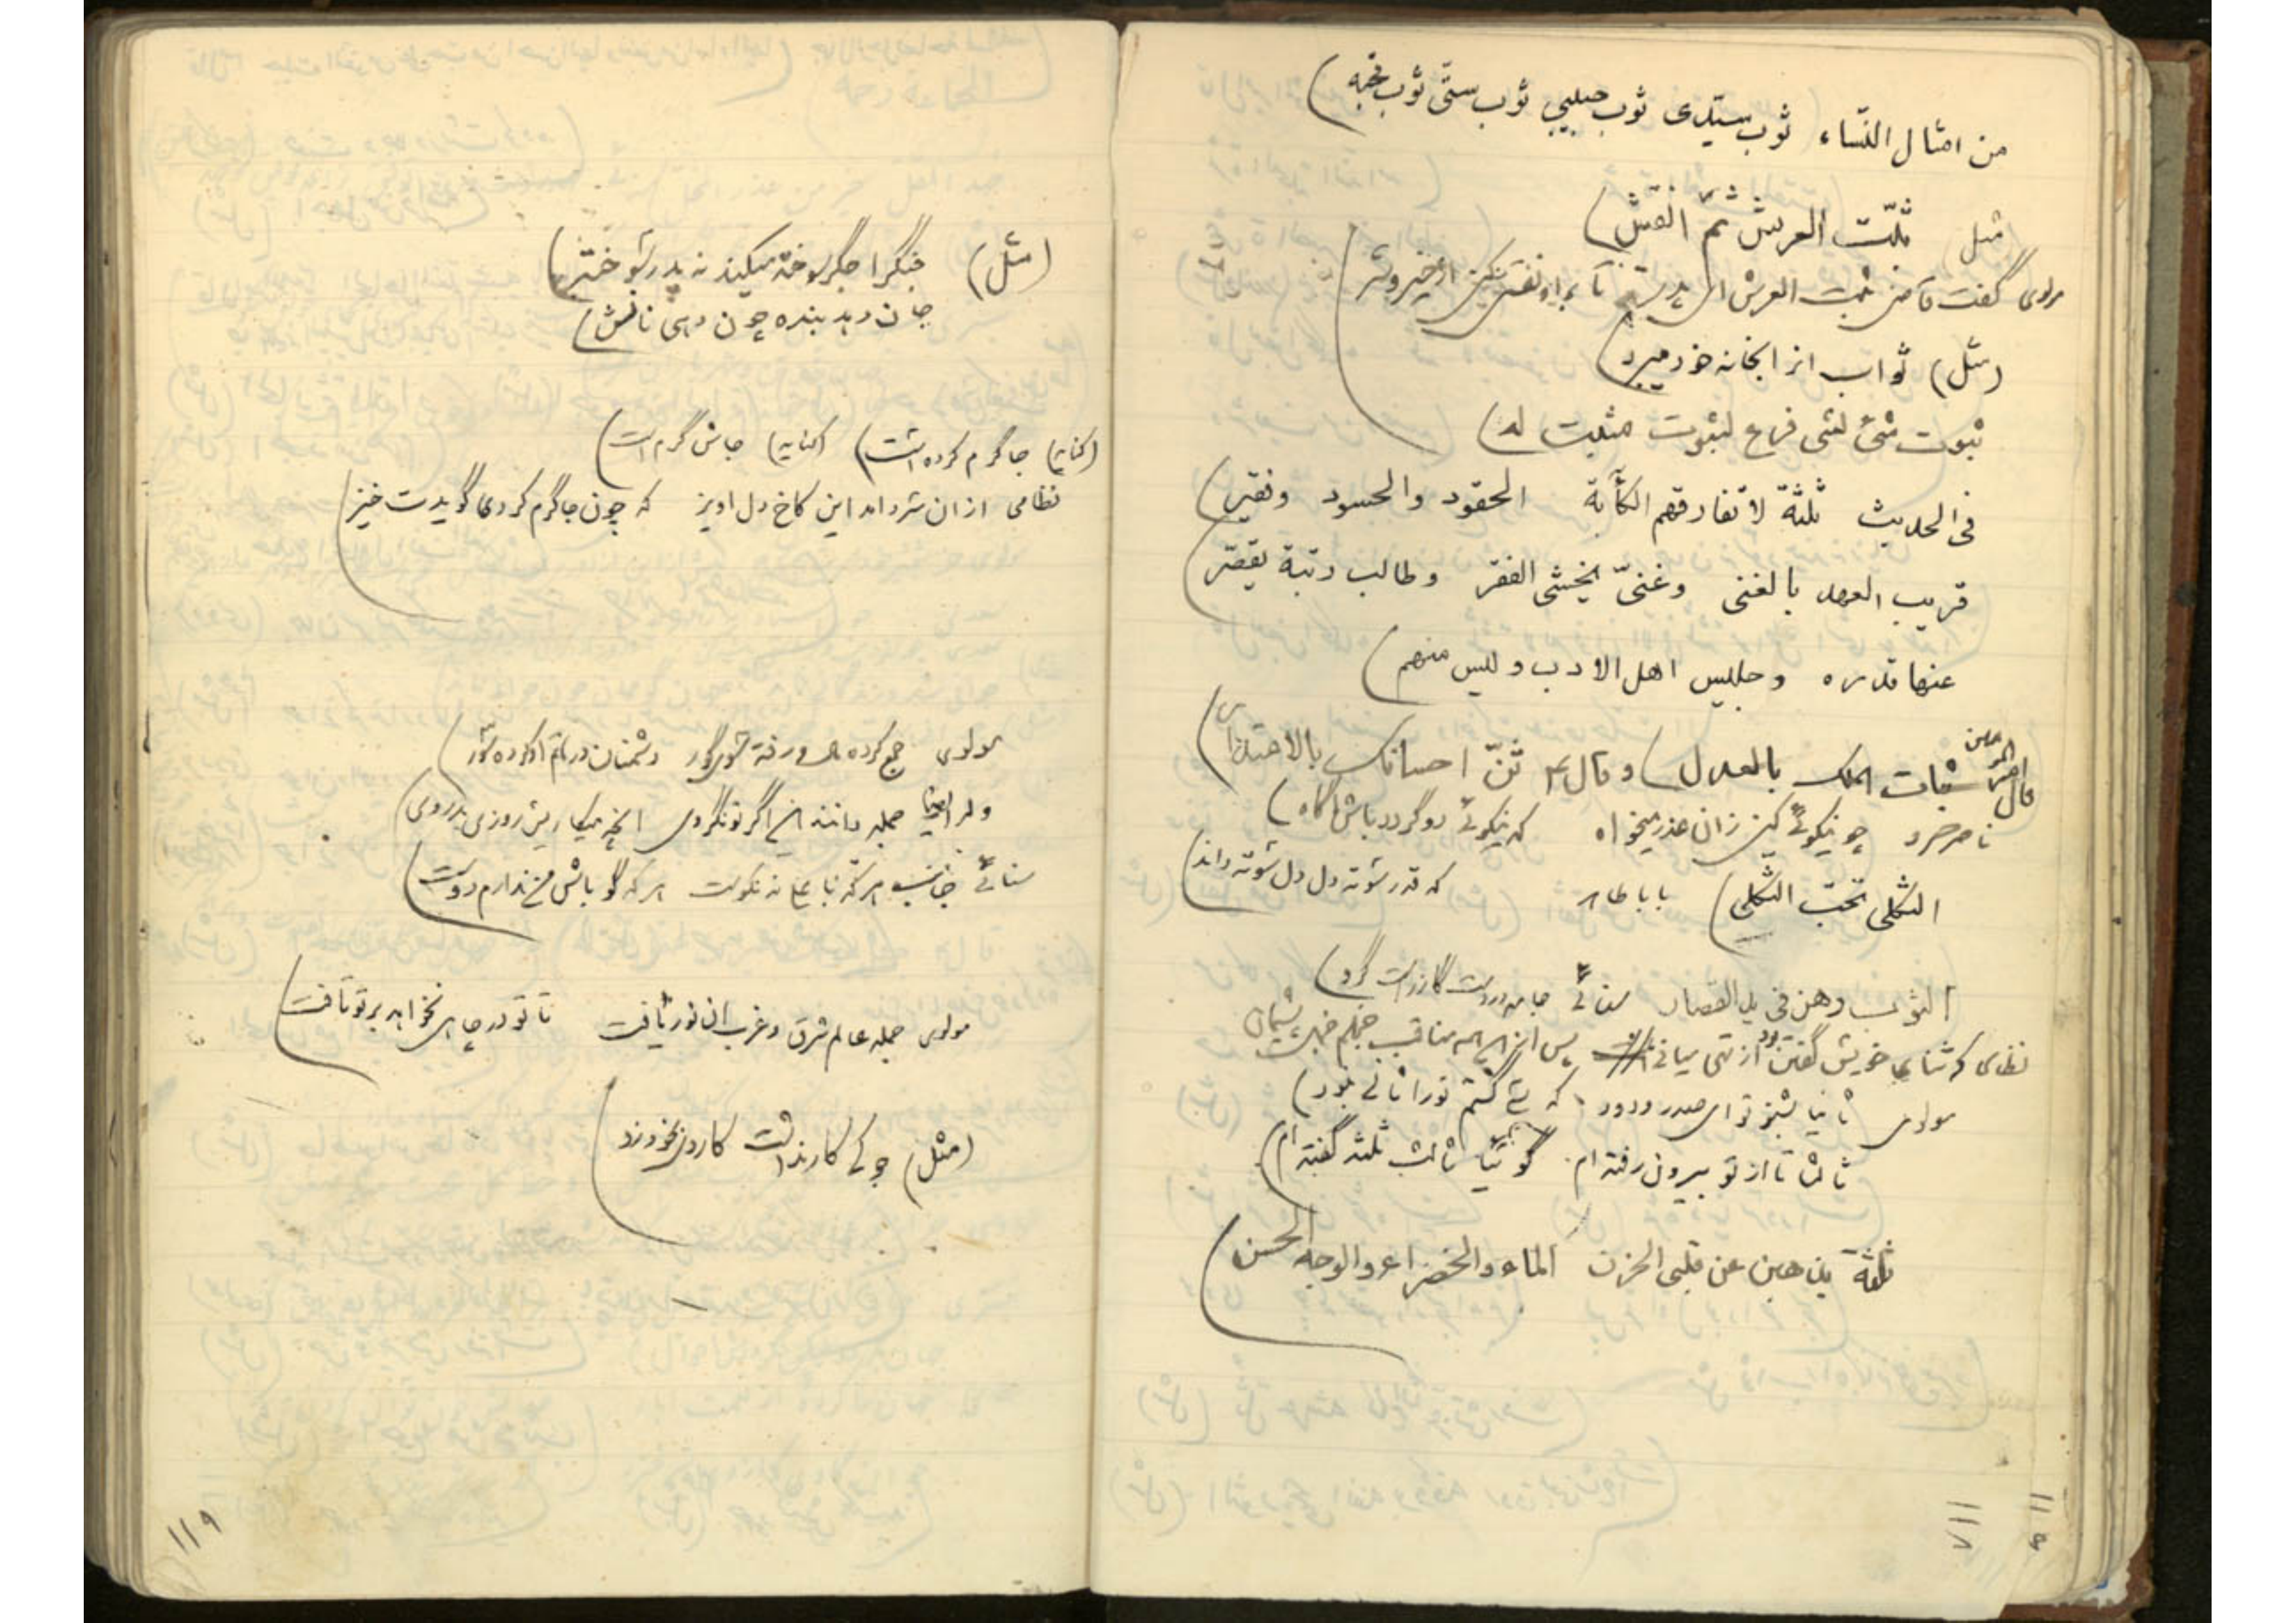 من امثال النّساء ثوب سیّدی ثوب حبیبی ثوب ستّی ثوب قحبه)
مثل ثبّت العرش ثمّ انقش)
مولوی گفت قاضی ثبت العرش ای پدر تا برو نقشی کنی از خیر و شر
(مثل) ثواب از اینجا نه خود میبرد)
ثبوت شئ لشی فرع لثبوت مثبت له)
فی الحدیث ثلثة لا تفارقهم الکآبة الحقود والحسود وفقیر)
قریب العهد بالغنی وغنیّ یخشی الفقر وطالب رتبة یقصّر
عنها قدره وجلیس اهل الادب ولیس منهم)
قال امیر المؤمنین ثبات الملک بالعدل) وقال ع ثنّ احسانک بالاعتذار)
ناصرخسرو چو نیکوئی کنی زان عذر میخواه که نیکوئی دو گردد باش آگاه)
الثکلی تحبّ الثکلی) باباطاهر که قدر سوته دل دل سوته داند)
الثوب رهن فی ید القصار سنائی جامه در دست گازرست گرو)
نظامی که ثنای خویش گفتن بود از تهی میانی پس ازین همه مناقب خجلم پشیمان
مولوی ثانیا بشنو تو ای صدر ودود که بسی گشتم تو را ثانی نبود)
ثالثا تا از تو بیرون رفته ام گوئیا ثالث ثلثه گفته ام)
ثلثة یذهبن عن قلبی الحزن الماء والخضراء والوجه الحسن)
۱۱۸
(مثل) جگر را جگر سوخته میکند نه پدر سوخته)
جان دهد بنده چون دهی نانش)
(کنایه) جا گرم کرده است) (کنایه) جاش گرم است)
نظامی از ان سرد امد این کاخ دل اویز که چون جا گرم کردی گویدت خیز)
مولوی جمع کرده مال و رفته سوی گور دشمنان در ماتم او کرده سور)
وله ایضا جمله دانند این اگر تو نگروی انچه میکاریش روزی بدروی
سنائی جانب هر که با علی نه نکوست هر که گو باش من ندارم دوست)
مولوی جمله عالم شرق و غرب ان نور یافت تا تو در چاهی نخواهد بر تو تافت)
(مثل)
۱۱۹